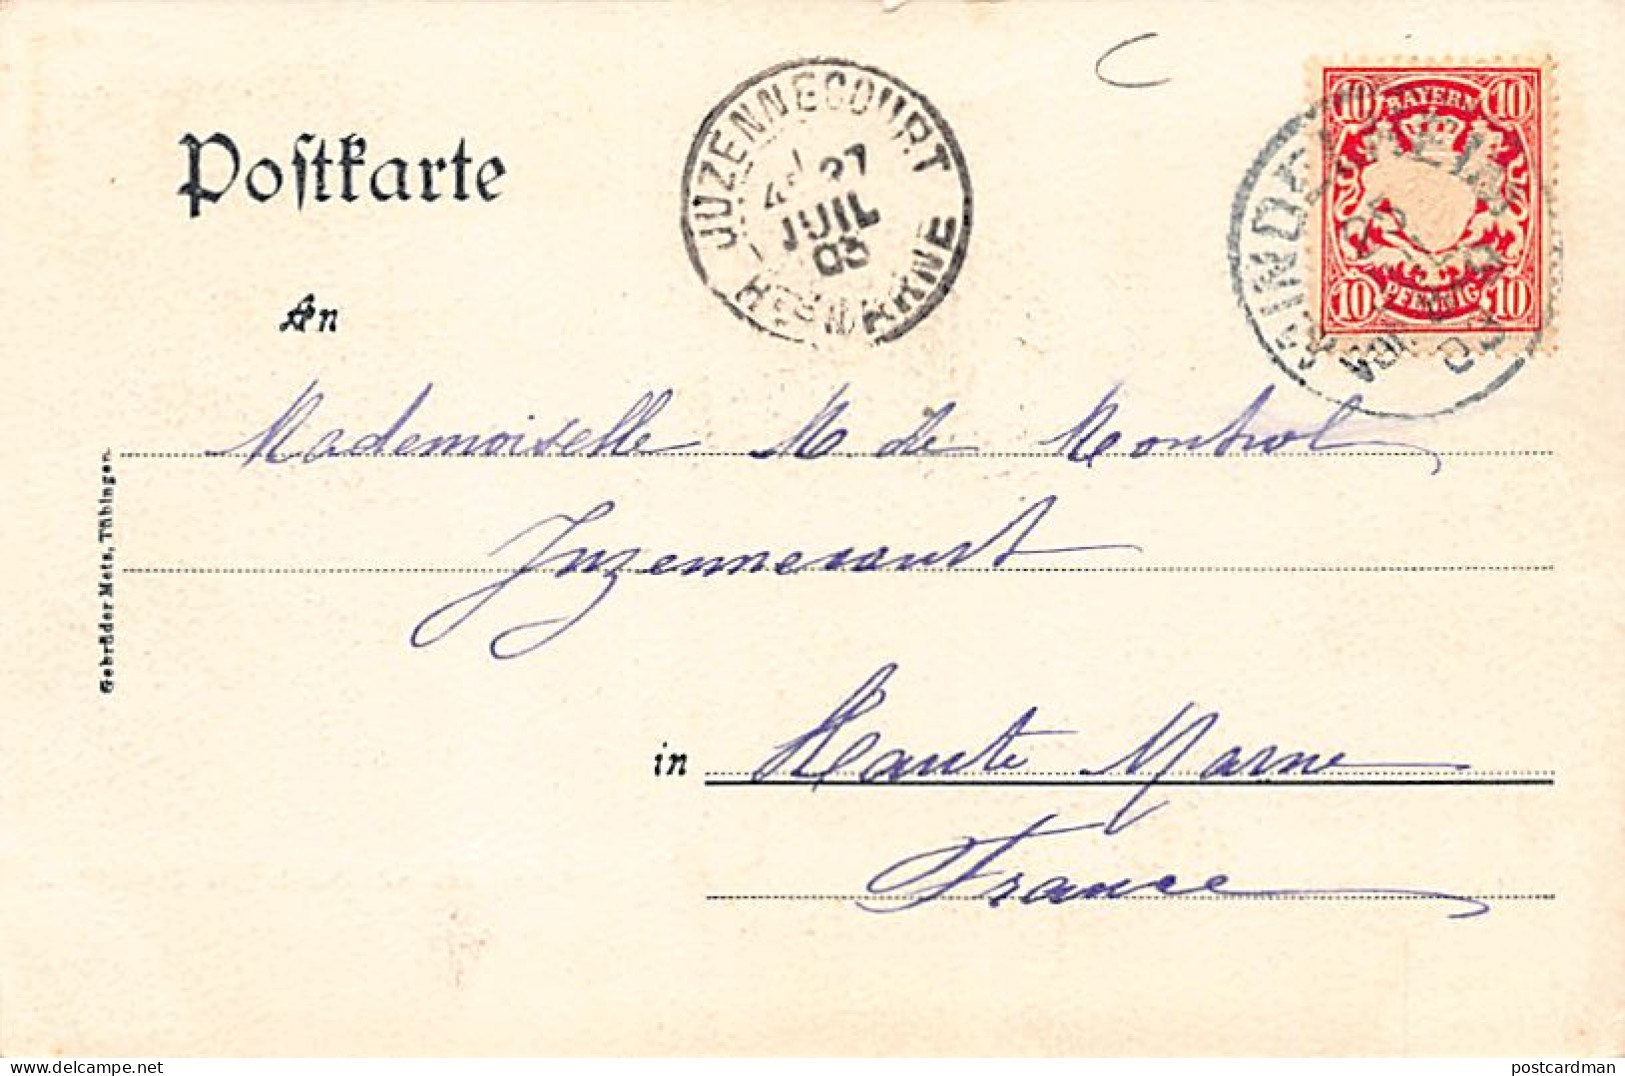 Postkarte
JUZENNECOURT
27
JUIL
03
Hte MARNE
10 BAYERN 10
10 PFENNIG 10
An
Mademoiselle M. de Montrol
Juzennecourt
in Haute Marne
France
Gebrüder Metz, Tübingen.
postcardman